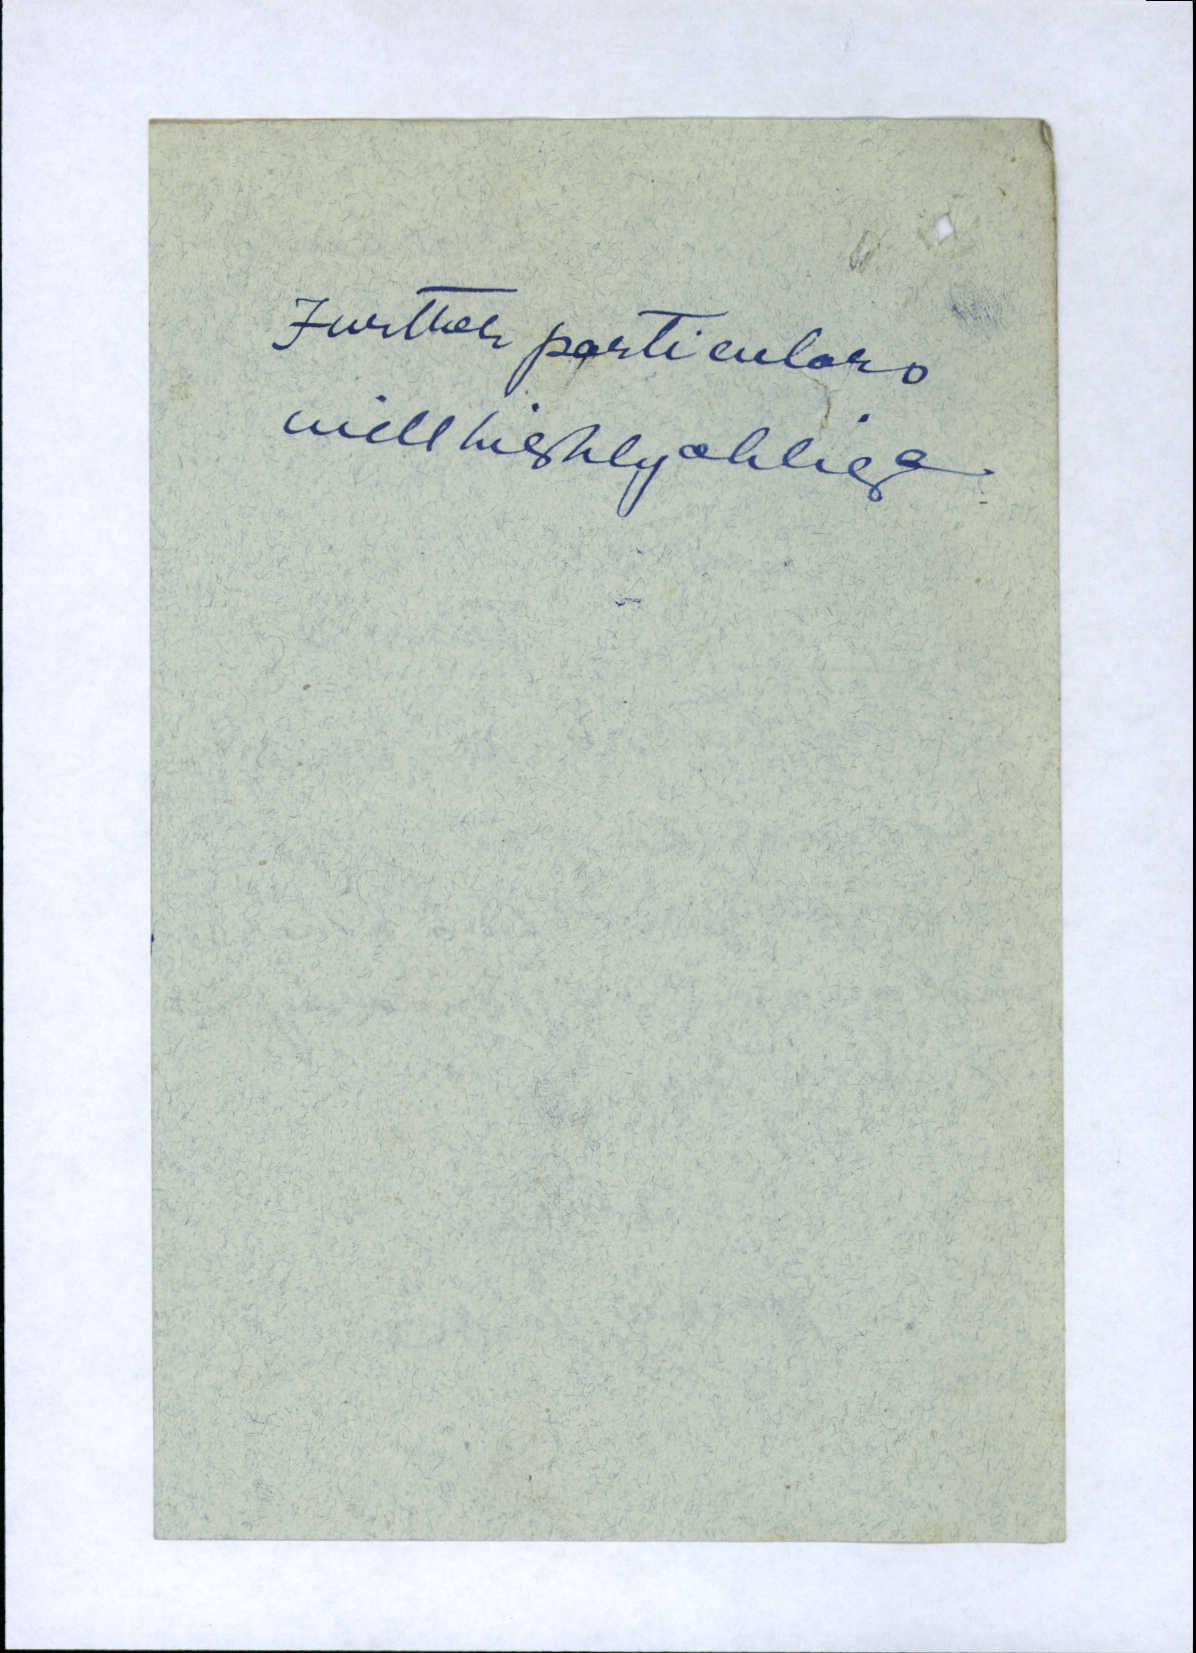 Further particulars
will highly oblige